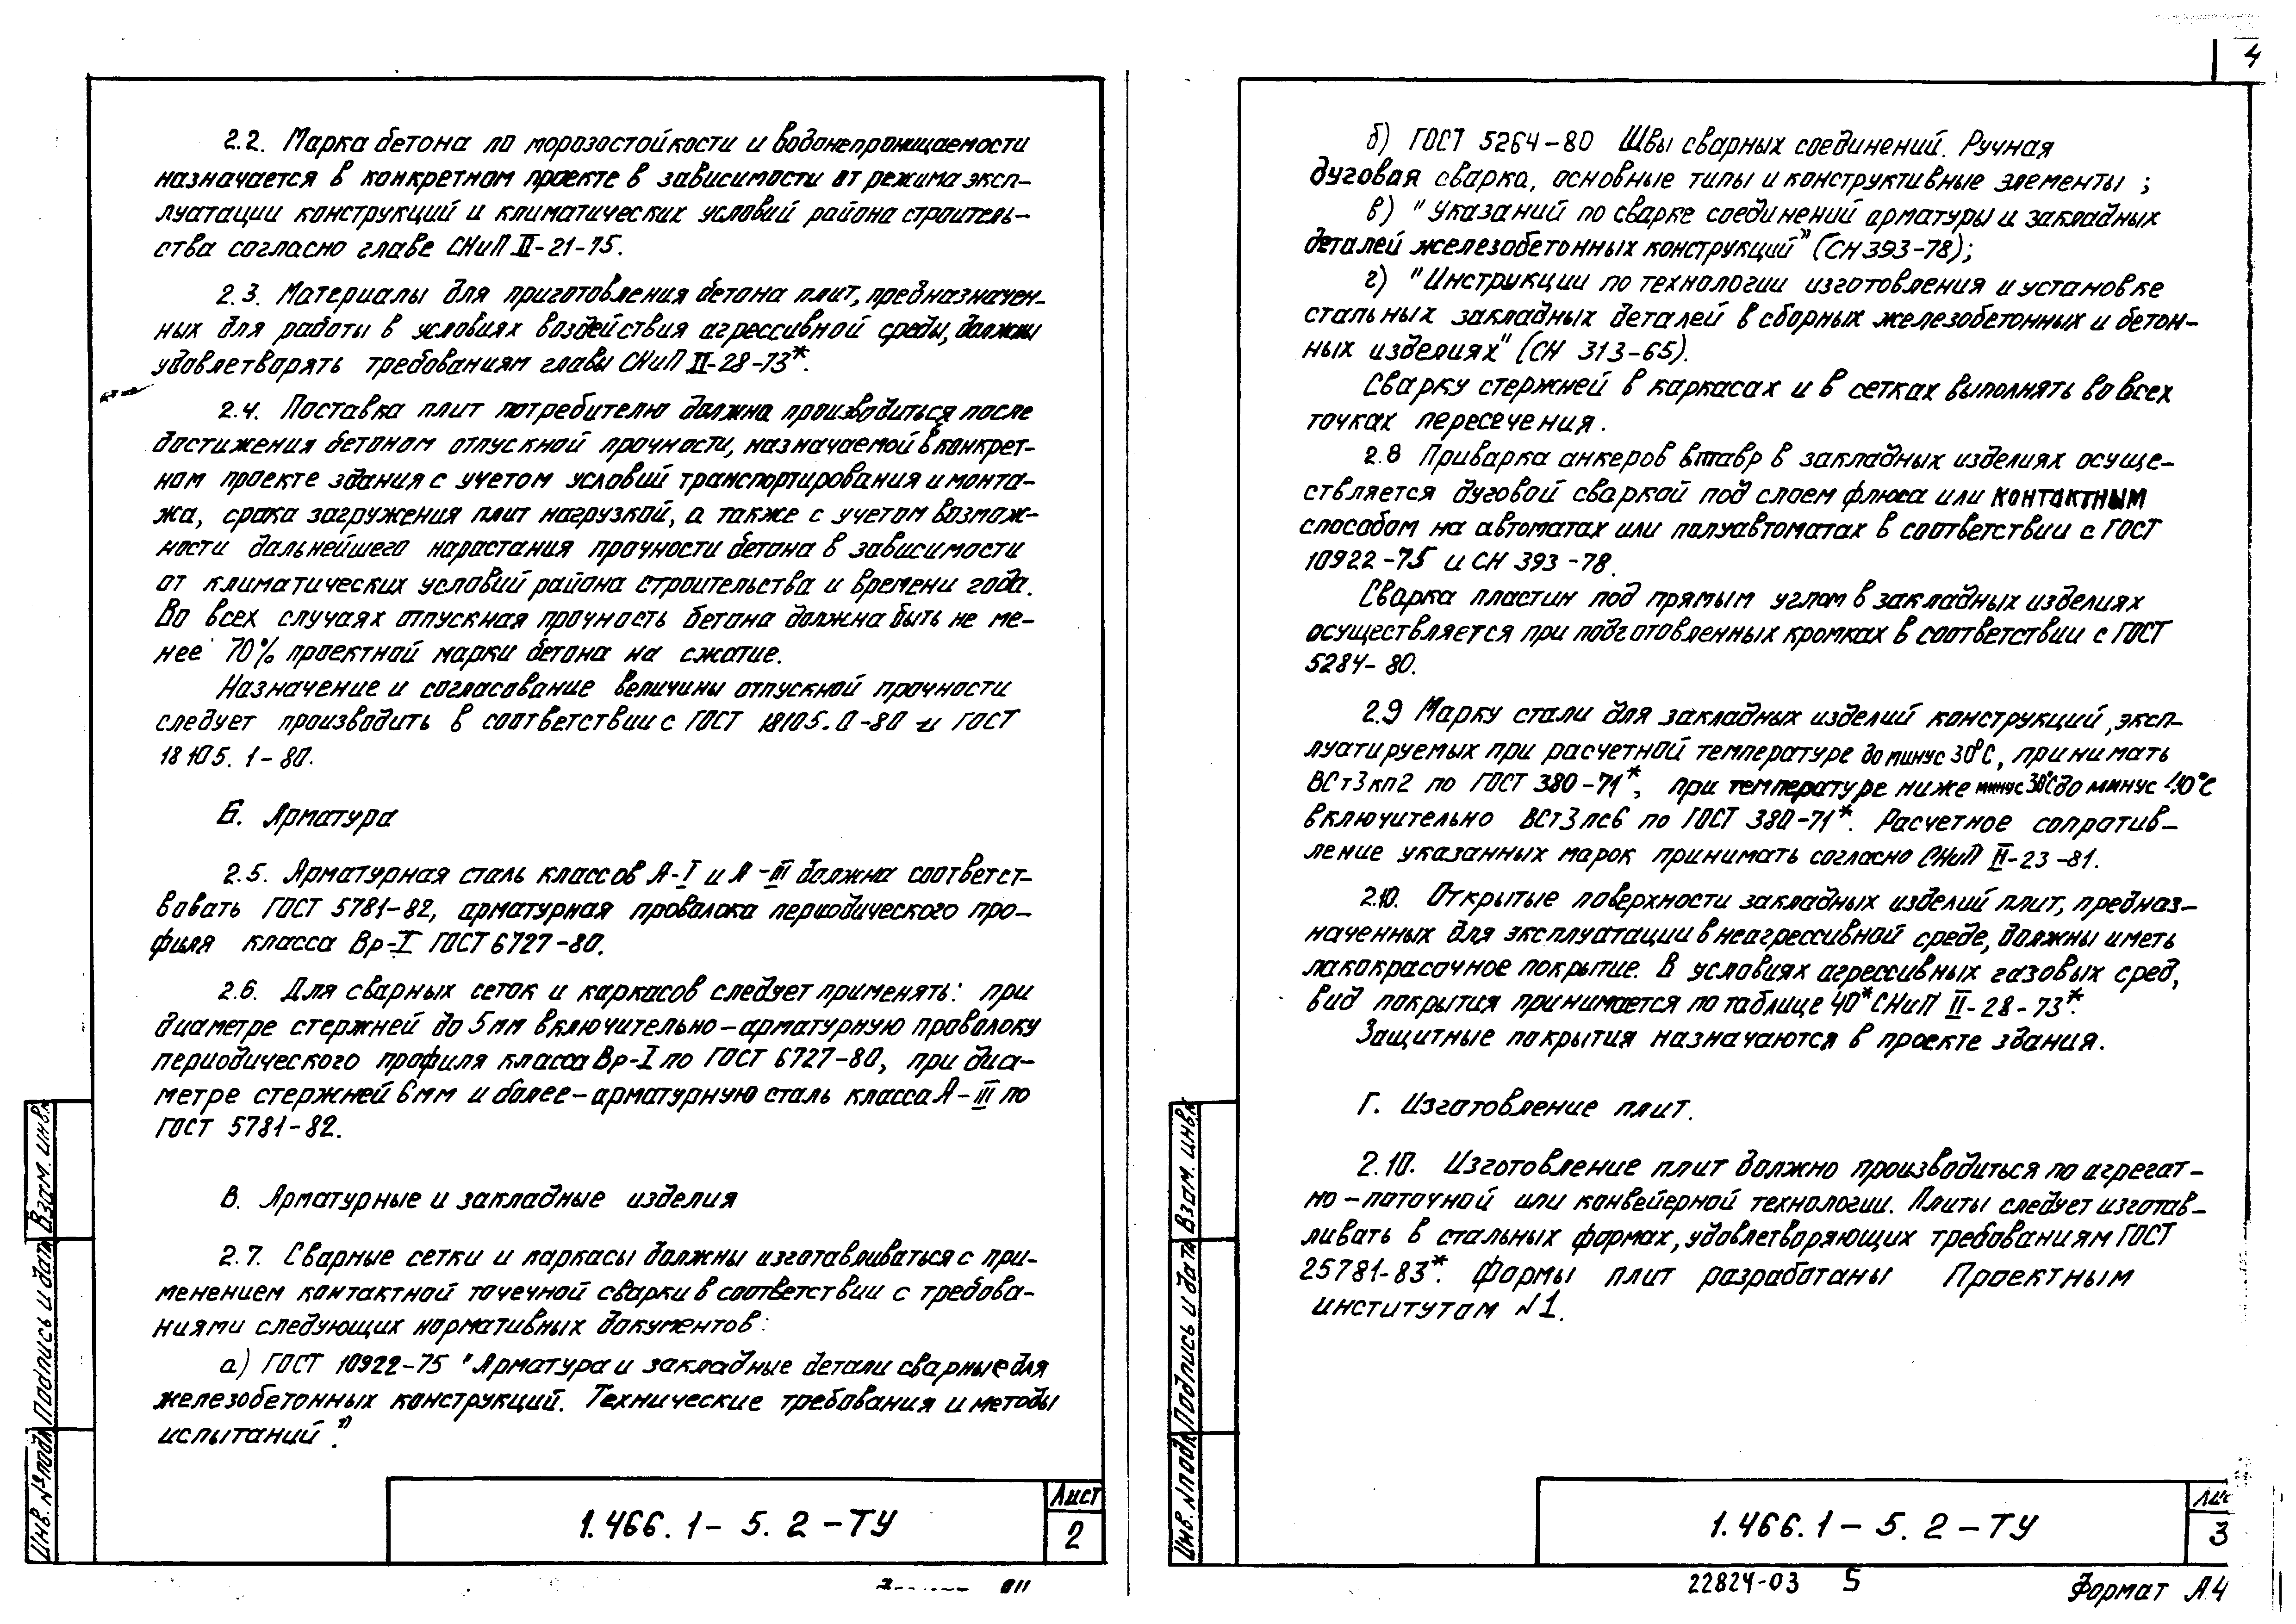 2.2. Марка бетона по морозостойкости и водонепроницаемости
назначается в конкретном проекте в зависимости от режима эксп-
луатации конструкций и климатических условий района строитель-
ства согласно главе СНиП II-21-75.
2.3. Материалы для приготовления бетона плит, предназначен-
ных для работы в условиях воздействия агрессивной среды, должны
удовлетворять требованиям главы СНиП II-28-73*.
2.4. Поставка плит потребителю должна производиться после
достижения бетоном отпускной прочности, назначаемой в конкрет-
ном проекте здания с учетом условий транспортирования и монта-
жа, срока загружения плит нагрузкой, а также с учетом возмож-
ности дальнейшего нарастания прочности бетона в зависимости
от климатических условий района строительства и времени года.
Во всех случаях отпускная прочность бетона должна быть не ме-
нее 70% проектной марки бетона на сжатие.
Назначение и согласование величины отпускной прочности
следует производить в соответствии с ГОСТ 18105.0-80 и ГОСТ
18105.1-80.
Б. Арматура
2.5. Арматурная сталь классов А-I и А-III должна соответст-
вовать ГОСТ 5781-82, арматурная проволока периодического про-
филя класса Вр-I ГОСТ 6727-80.
2.6. Для сварных сеток и каркасов следует применять: при
диаметре стержней до 5мм включительно-арматурную проволоку
периодического профиля класса Вр-I по ГОСТ 6727-80, при диа-
метре стержней 6мм и более-арматурную сталь класса А-III по
ГОСТ 5781-82.
В. Арматурные и закладные изделия
2.7. Сварные сетки и каркасы должны изготавливаться с при-
менением контактной точечной сварки в соответствии с требова-
ниями следующих нормативных документов:
а) ГОСТ 10922-75 "Арматура и закладные детали сварные для
железобетонных конструкций. Технические требования и методы
испытаний".
1.466.1-5.2-ТУ
Лист
2
Инв. №подл
Подпись и дата
Взам. инв.№
4
б) ГОСТ 5264-80 Швы сварных соединений. Ручная
дуговая сварка, основные типы и конструктивные элементы;
в) "Указаний по сварке соединений арматуры и закладных
деталей железобетонных конструкций" (СН 393-78);
г) "Инструкции по технологии изготовления и установке
стальных закладных деталей в сборных железобетонных и бетон-
ных изделиях" (СН 313-65).
Сварку стержней в каркасах и в сетках выполнять во всех
точках пересечения.
2.8 Приварка анкеров втавр в закладных изделиях осуще-
ствляется дуговой сваркой под слоем флюса или контактным
способом на автоматах или полуавтоматах в соответствии с ГОСТ
10922-75 и СН 393-78.
Сварка пластин под прямым углом в закладных изделиях
осуществляется при подготовленных кромках в соответствии с ГОСТ
5284-80.
2.9 Марку стали для закладных изделий конструкций, эксп-
луатируемых при расчетной температуре до минус 30°С, принимать
ВСт3кп2 по ГОСТ 380-71*, при температуре ниже минус 30°С до минус 40°С
включительно ВСт3пс6 по ГОСТ 380-71*. Расчетное сопротив-
ление указанных марок принимать согласно СНиП II-23-81.
2.10. Открытые поверхности закладных изделий плит, предназ-
наченных для эксплуатации в неагрессивной среде, должны иметь
лакокрасочное покрытие. В условиях агрессивных газовых сред,
вид покрытия принимается по таблице 40* СНиП II-28-73*.
Защитные покрытия назначаются в проекте здания.
Г. Изготовление плит.
2.10. Изготовление плит должно производиться по агрегат-
но-поточной или конвейерной технологии. Плиты следует изготав-
ливать в стальных формах, удовлетворяющих требованиям ГОСТ
25781-83*. Формы плит разработаны Проектным
институтом N1.
1.466.1-5.2-ТУ
3
Инв. Nподл
Подпись и дата
Взам. инв.№
22824-03 5
Формат А4